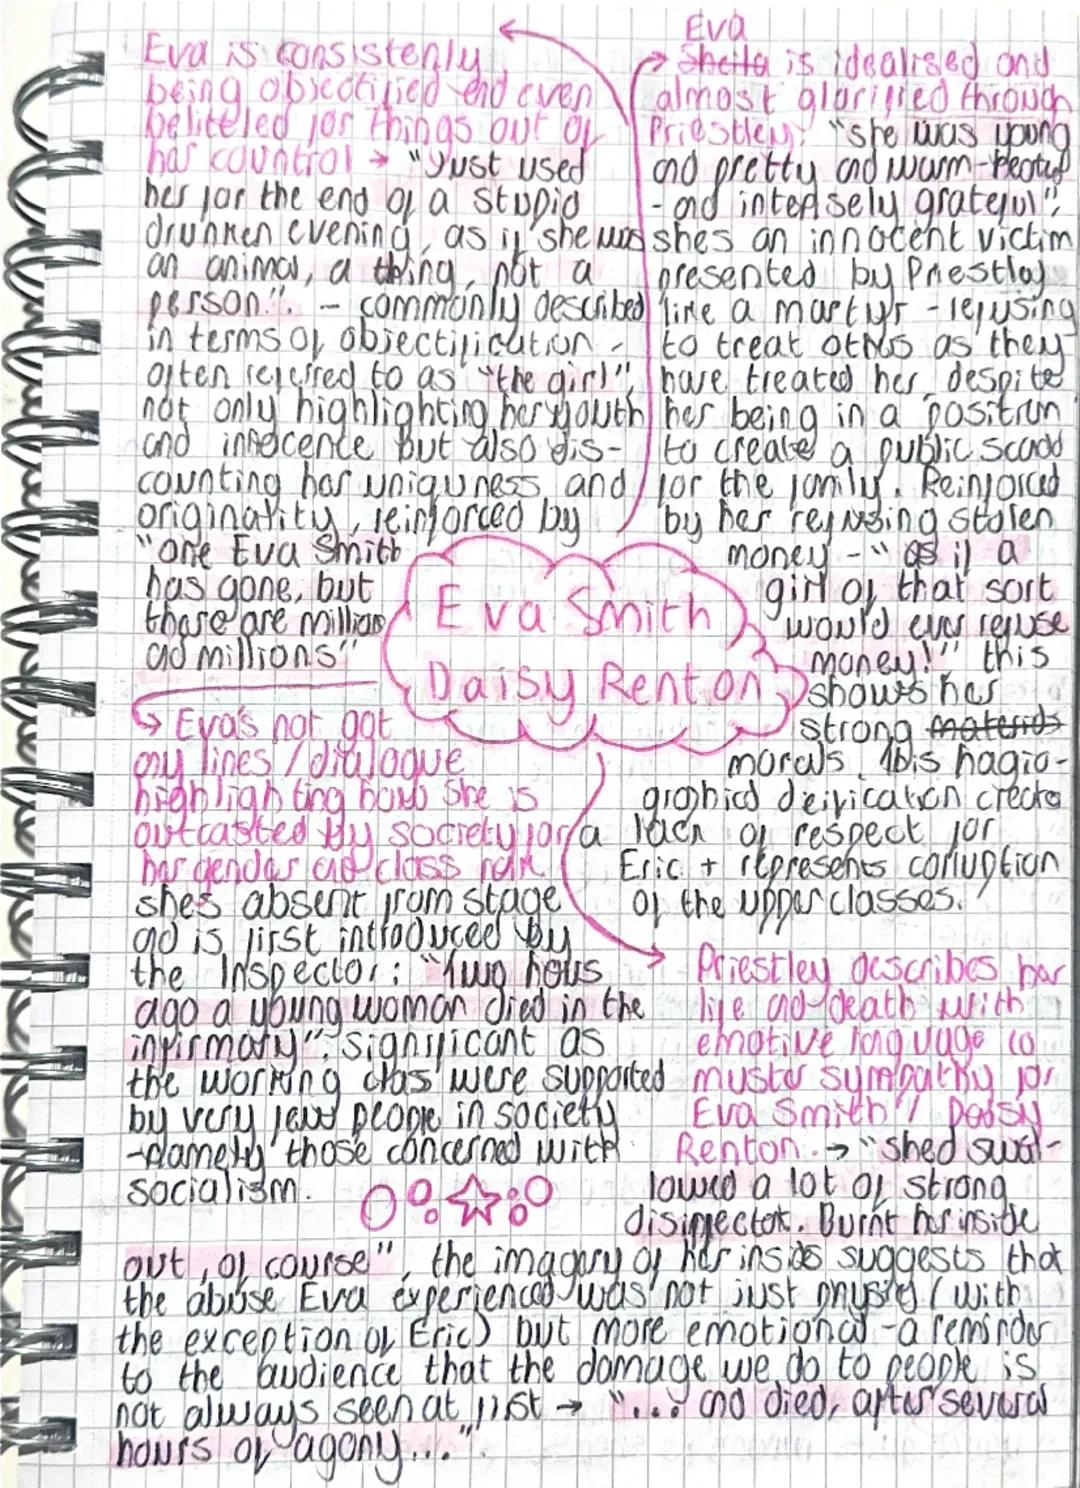 Eva is consistenly
being objectified and even
beliteled for things out of
her countrol → "Just used
her for the end of a stupid
drunken evening, as if she was
an animal, a thing, not a
person". - commonly described
in terms of objectification -
often referred to as "the girl",
not only highlighting her youth
and innocence but also dis-
counting her uniquness and
originality, reinforced by
"one Eva Smith
has gone, but
there are millions
and millions"
Eva
Sheila is idealised and
almost glorified through
Priestley: "she was young
and pretty and warm-hearted
- and intensely grateful",
shes an innocent victim
presented by Priestley
like a martyr - refusing
to treat others as they
have treated her, despite
her being in a position
to create a public scandal
for the family. Reinforced
by her refusing stolen
money - "as if a
girl of that sort
would ever refuse
money!" this
shows her
strong materids
morals. This hagio-
graphical deification creates
a lack of respect for
Eric + represents corruption
of the upper classes.
Eva Smith
Daisy Renton
↳ Eva's not got
any lines / dialogue
highlighting how she is
outcasted by society for
her gender and class rank
shes absent from stage
and is first introduced by
the Inspector: "Two hours
ago a young woman died in the
infirmary". Significant as
the working class were supported
by very few people in society
-namely those concerned with
socialism.
→ Priestley describes her
life and death with
emotive language to
muster sympathy for
Eva Smith / Daisy
Renton. → "shed swal-
lowed a lot of strong
disinfectant. Burnt her inside
out, of course", the imagery of her insides suggests that
the abuse Eva experienced was not just (with
the exception of Eric) but more emotional - a reminder
to the audience that the damage we do to people is
not always seen at first → "... and died, after several
hours of agony..."